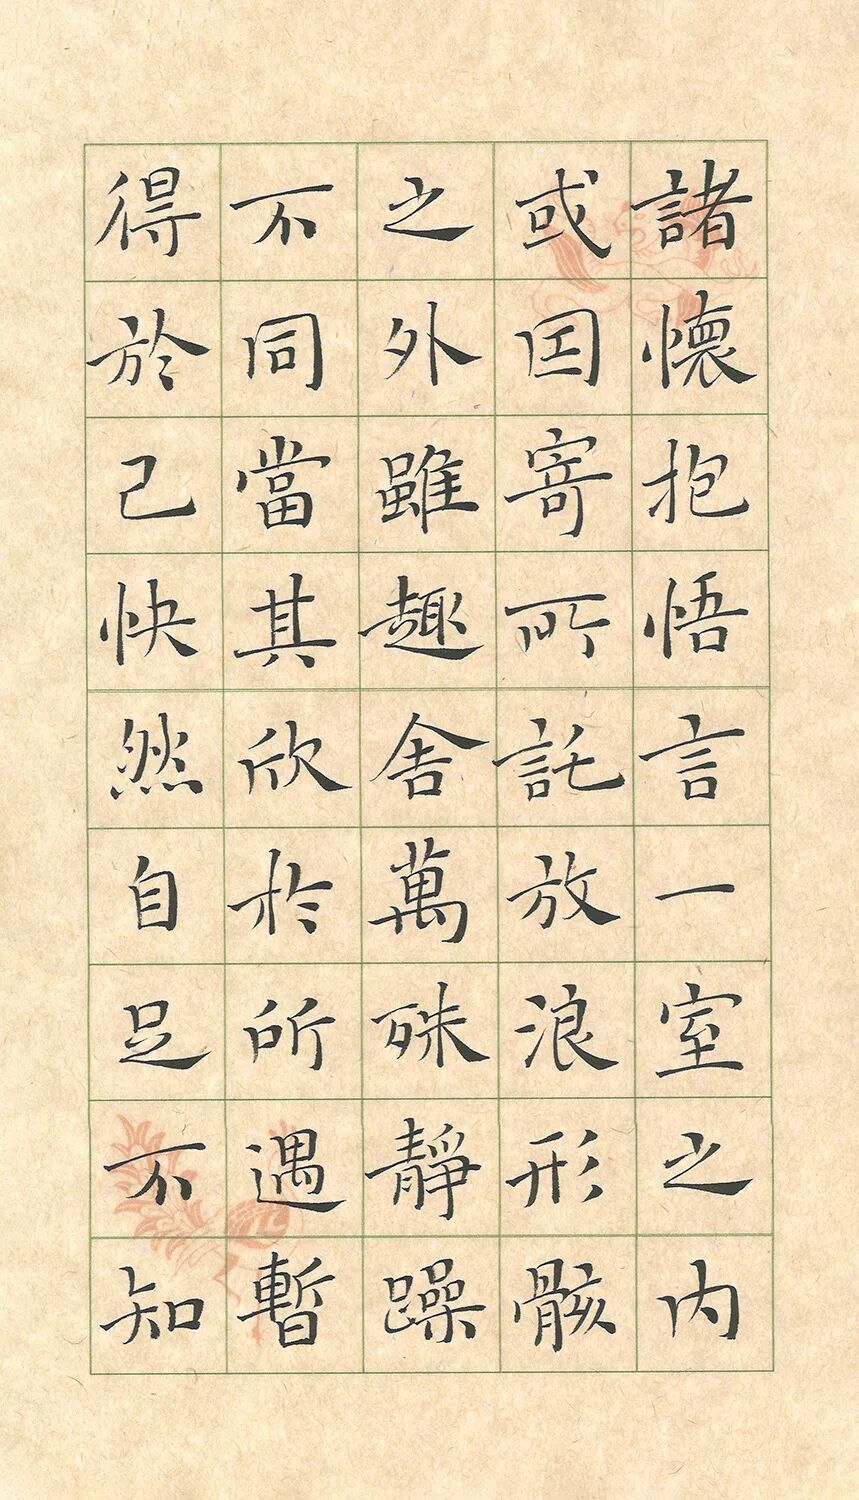 諸懷抱悟言一室之内
或因寄所託放浪形骸
之外雖趣舍萬殊靜躁
不同當其欣於所遇暫
得於己快然自足不知